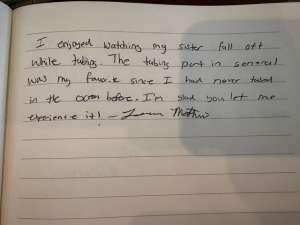 I enjoyed watching my sister fall off
while tubing. The tubing part in general
was my favorite since I had never tubed
in the ocean before. I'm glad you let me
experience it! –